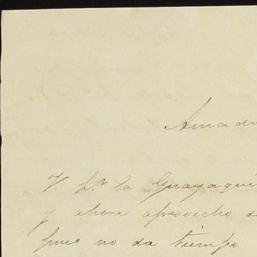 Amad
V. Lⁿ la Guayaqui
y ahora aprovecho
pues no da tiempo